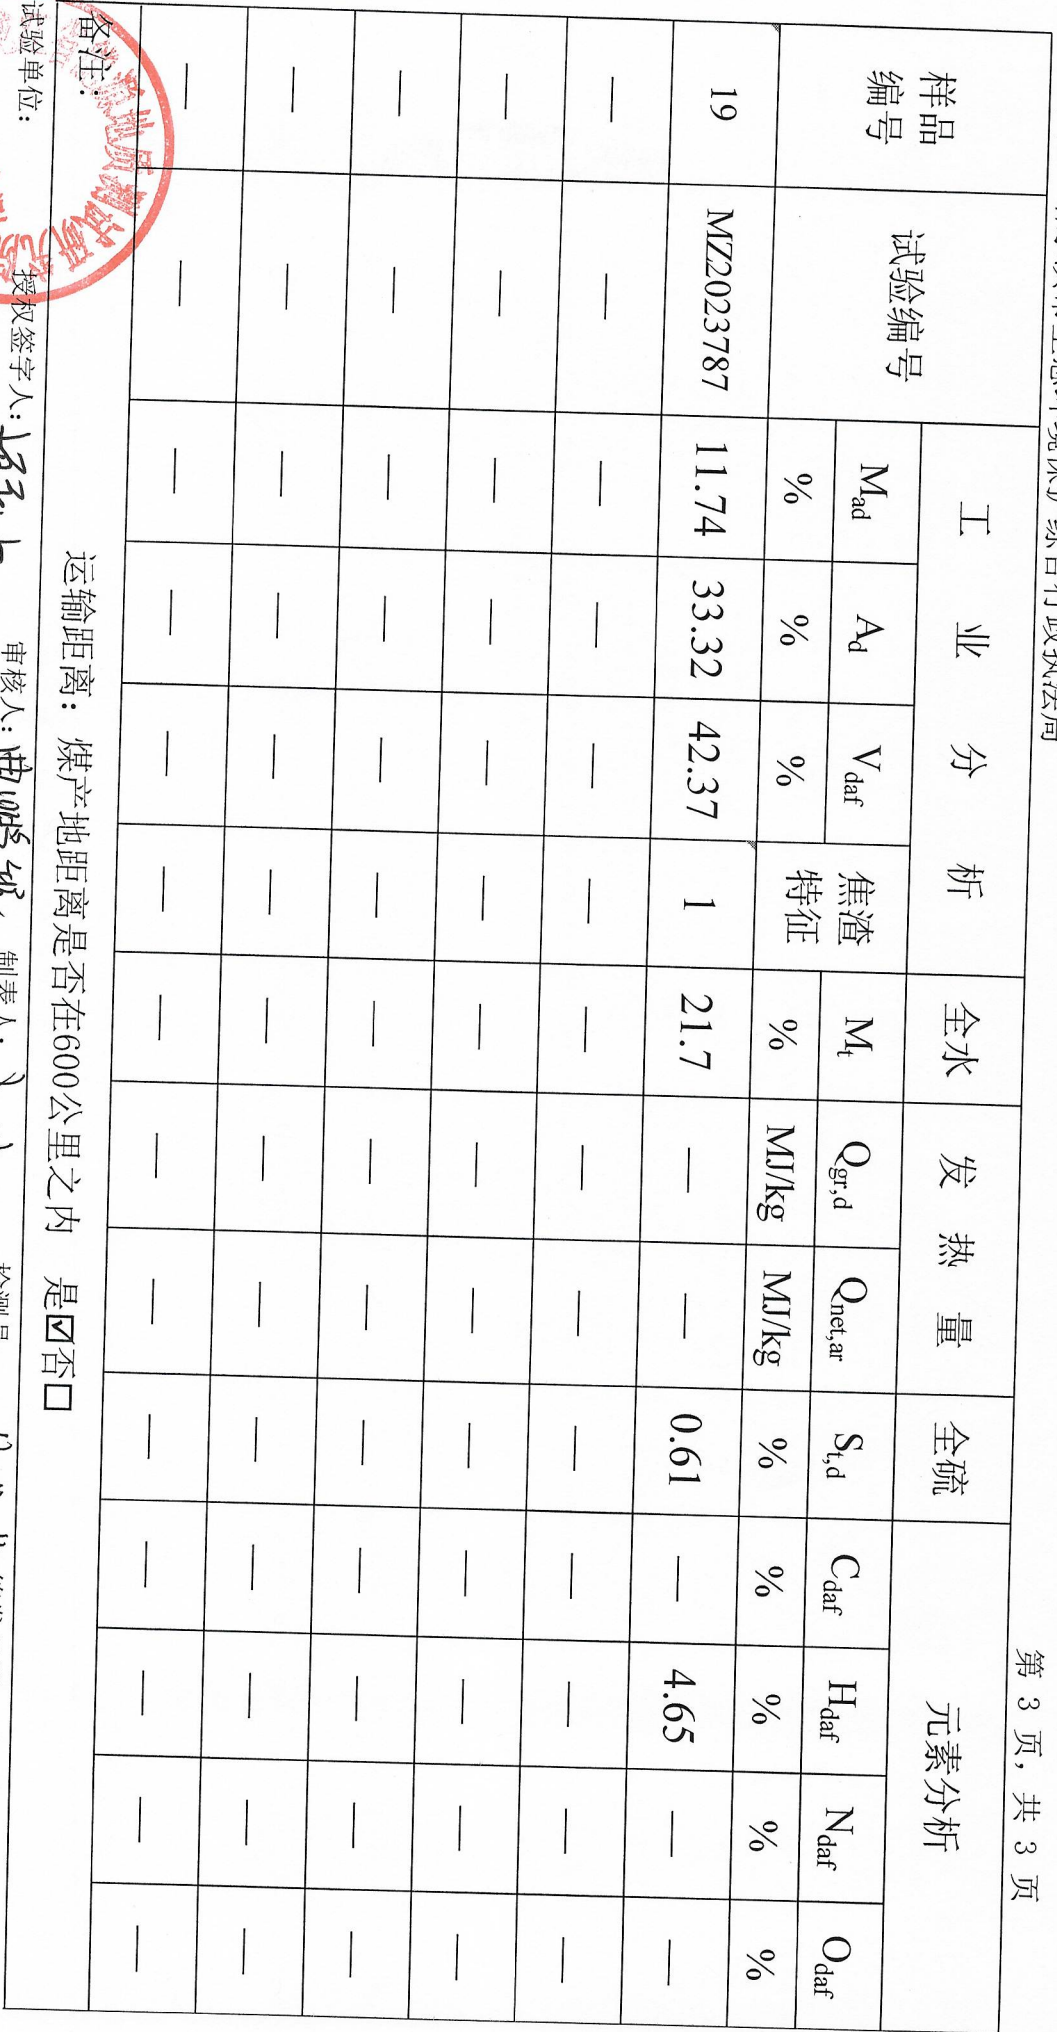 生态环境保护综合行政执法局
第 3 页, 共 3 页
样品编号 试验编号 工业分析 全水 发热量 全硫 元素分析
Mad Ad Vdaf 焦渣特征 Mt Qgr,d Qnet,ar St,d Cdaf Hdaf Ndaf Odaf
% % % % MJ/kg MJ/kg % % % % %
19 MZ2023787 11.74 33.32 42.37 1 21.7 — — 0.61 — 4.65 — —
— — — — — — — — — — — — — —
— — — — — — — — — — — — — —
— — — — — — — — — — — — — —
— — — — — — — — — — — — — —
— — — — — — — — — — — — — —
备注: 运输距离: 煤产地距离是否在600公里之内 是☑否□
试验单位: 授权签字人: 审核人: 制表人: 检测日
地质测试研究